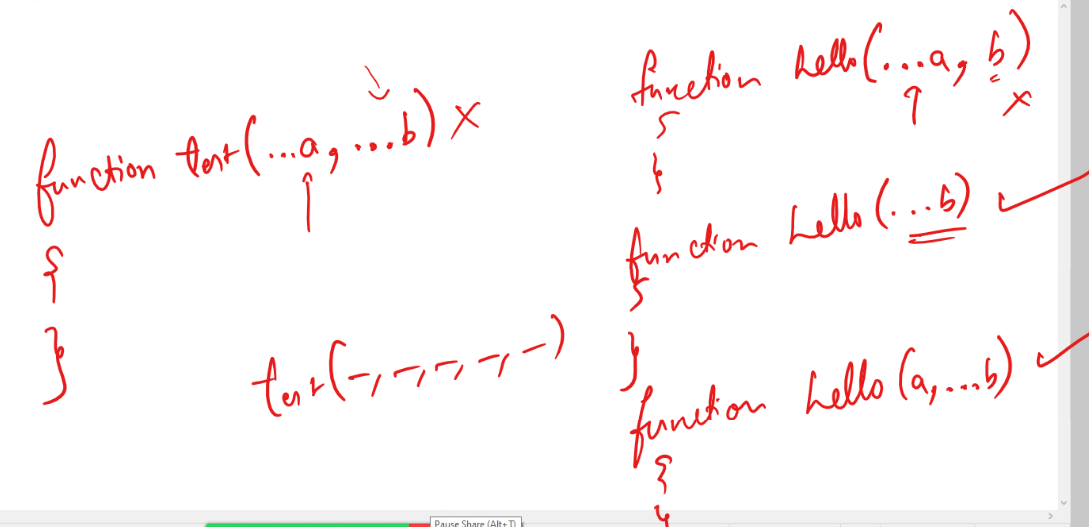 function test(...a, ...b) X
{
}
test(-, -, -, -, -)
function hello(...a, b)
X
{
}
function hello(...b) ✓
{
}
function hello(a, ...b) ✓
{
Pause Share (Alt+T)